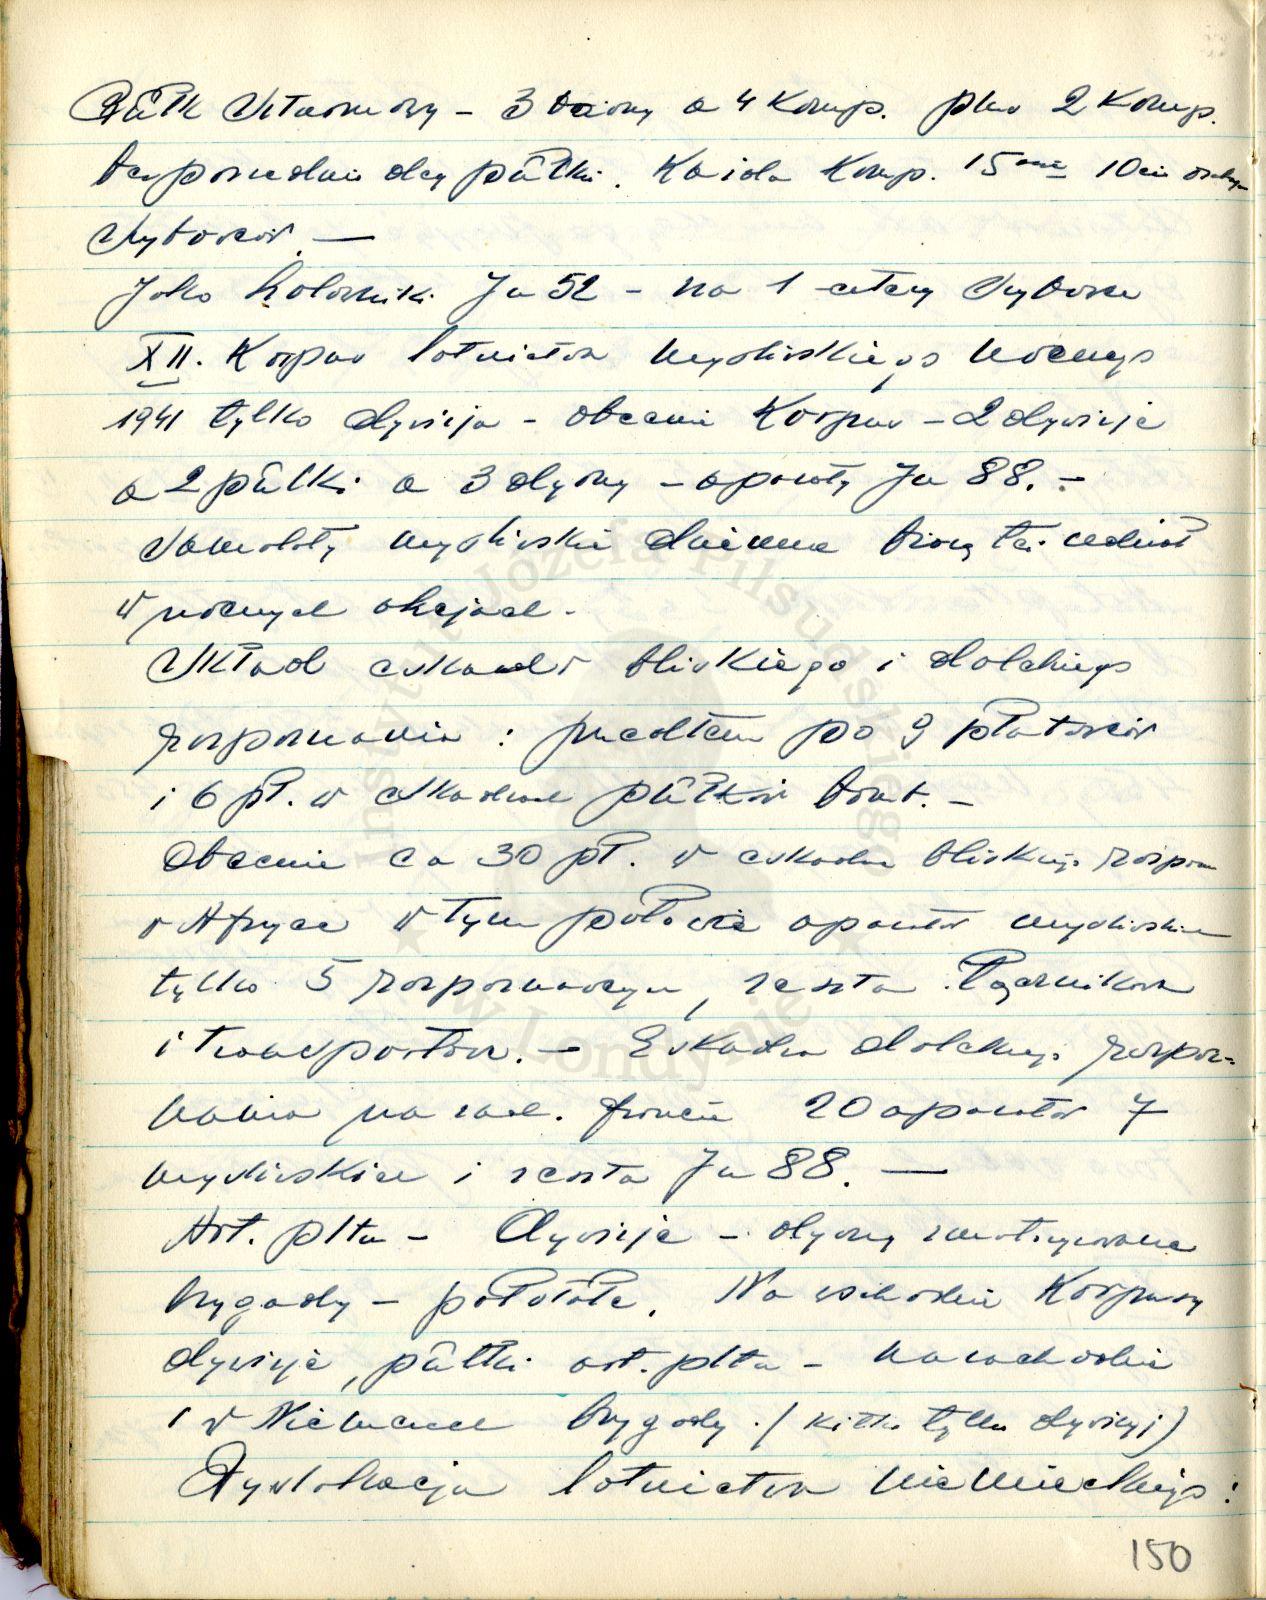 Pułk szturmowy - 3 baony a 4 komp. plus 2 komp.
bezpośrednio dcy pułku. Każda komp. 15 10cio osobow
szybowców. —
Jako holowniki Ju 52 - na 1 cztery szybowce
XII. Korpus lotnictwa myśliwskiego nocnego
1941 tylko dywizja - obecnie Korpus - 2 dywizje
a 2 pułki a 3 dyony - aparaty Ju 88. -
Samoloty myśliwskie dzienne biorą też udział
w nocnych akcjach -
Skład eskadr bliskiego i dalekiego
rozpoznania : przedtem po 9 płatowców
i 6 pł. w eskadrach pułków bomb. -
Obecnie ca 30 pł. w eskadrze bliskiego rozpozn
w Afryce w tym połowa aparatów myśliwskich
tylko 5 rozpoznawczych, reszta łącznikowe
i transportowe. - Eskadra dalekiego rozpoz-
nania na zach. froncie 20 aparatów 7
myśliwskich i reszta Ju 88. —
Art. pltn - Dywizje - dyony zmotoryzowane
brygady - półstałe. Na wschodzie Korpusy
dywizje, pułki art. pltn - na zachodzie
i w Niemczech brygady. (kilka tylko dywizyj)
Dyslokacja lotnictwa niemieckiego :
150
Instytut Józefa Piłsudskiego
w Londynie